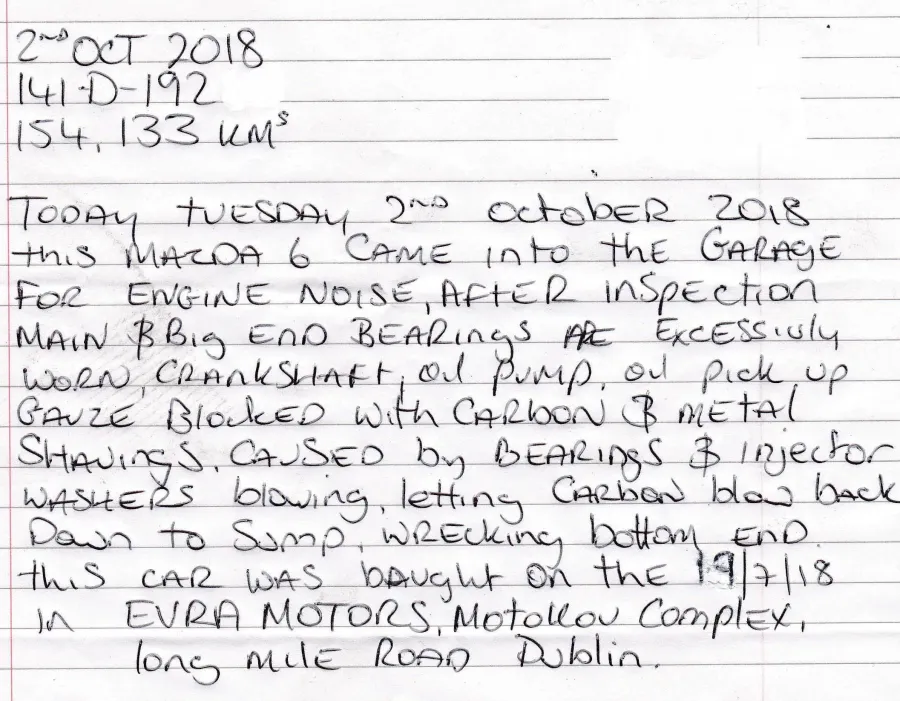 2ND OCT 2018
141-D-192
154,133 KMS
TODAY TUESDAY 2ND OCTOBER 2018
this MAZDA 6 CAME into the GARAGE
FOR ENGINE NOISE, AFTER inSpection
MAIN & Big END BEARings ARE Excessivly
WORN, CRANKSHAFT, oil pump, oil pick up
GAUZE Blocked with CARBON & METAL
SHAVings, CAUSED by BEARings & injector
WASHERS blowing, letting CARBON blow back
Down to Sump, WRECking bottom END.
this CAR WAS baught on the 19/7/18
in EVRA MOTORS, Complex,
long MILE ROAD Dublin.